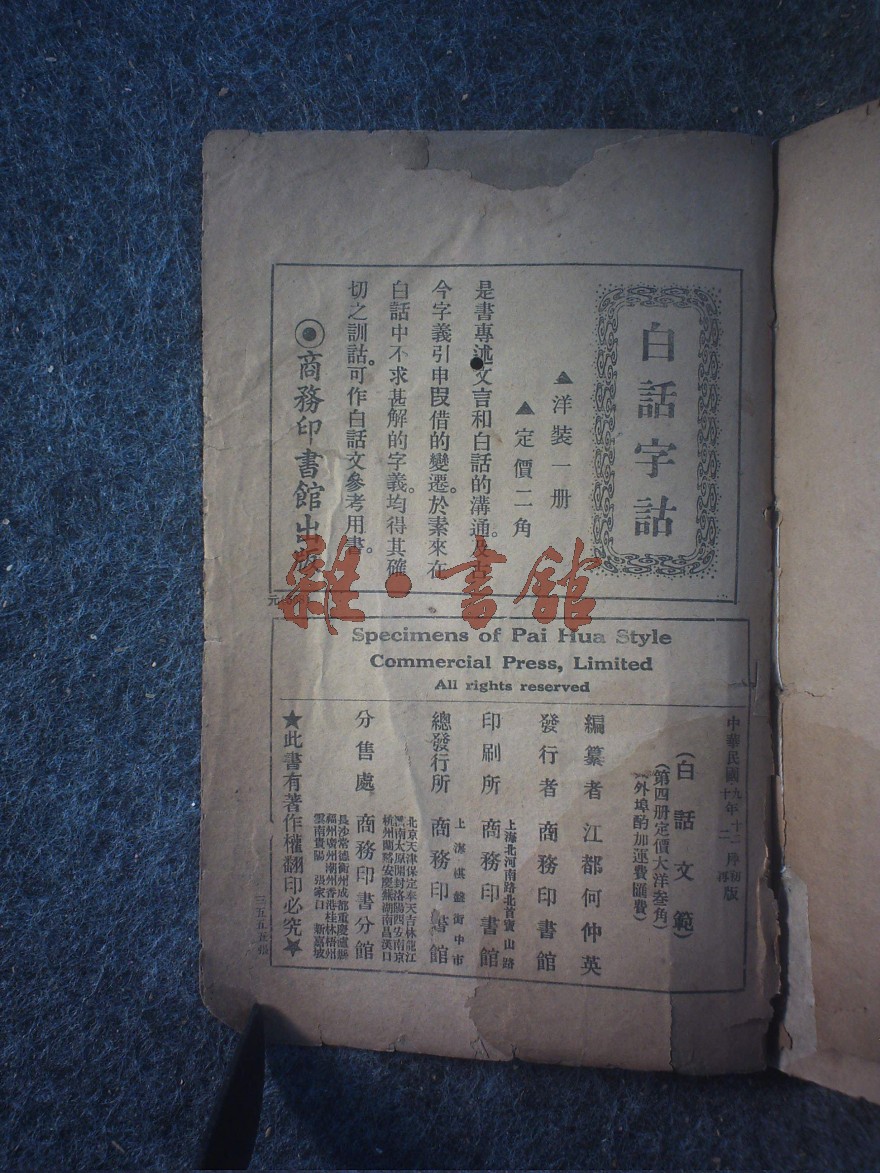 白話字詁
▲洋裝一册
▲定價二角
是書專述文言和白話的溝通。及古
今字義引申叚借的變遷。於素來在
白話中不求甚解的字義。均得其確
切之訓詁。可作白話文參考用書。
商務印書館出版
元
雜·書館
Specimens of Pai Hua Style
Commercial Press, Limited
All rights reserved
中華民國九年十二月初版
十 二 再
(白話文範)
(第四册定價大洋叁角)
(外埠酌加運費匯費)
編纂者 江都何仲英
發行者 商務印書館
印刷所 上海北河南路北首寶山路 商務印書館
總發行所 上海棋盤街中市 商務印書館
分售處 商務印書分館
北京天津保定奉天吉林龍江
濟南太原開封洛陽西安南京
杭州蘭谿安慶蕪湖南昌漢口
長沙常德衡州成都重慶瀘縣
福州廣州潮州香港桂林梧州
雲南貴陽 張家口 新嘉坡
★此書有著作權翻印必究★